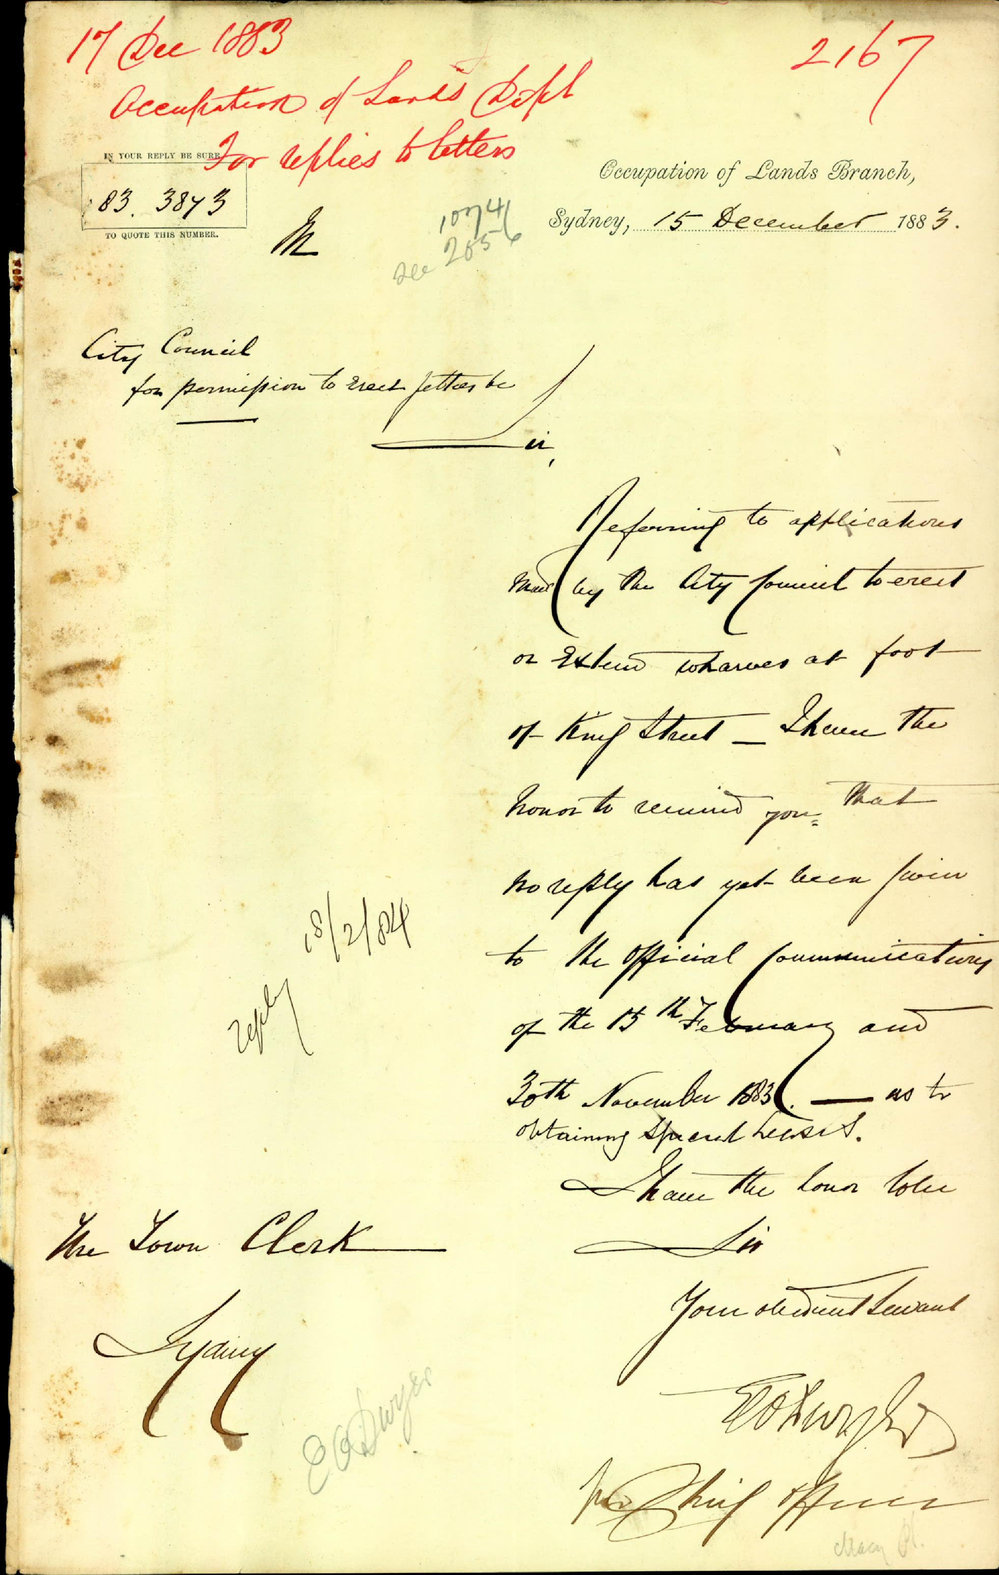 17 Dec 1883
2167
Occupation of Lands Dept
For replies to letters
IN YOUR REPLY BE SURE
83. 3873
TO QUOTE THIS NUMBER.
M
1074
see 2056
Occupation of Lands Branch,
Sydney, 15 December 1883.
City Council
for permission to erect Jetties &c
Sir,
Referring to applications
made by the City Council to erect
or Extend wharves at foot
of King Street — I have the
honor to remind you that
no reply has yet been given
to the official communications
of the 15th February and
30th November 1883. — as to
obtaining special leases.
I have the honor to be
Sir
Your obedient Servant
E O Dwyer
for Chief Officer
reply 18/2/84
The Town Clerk
Sydney
E O Dwyer